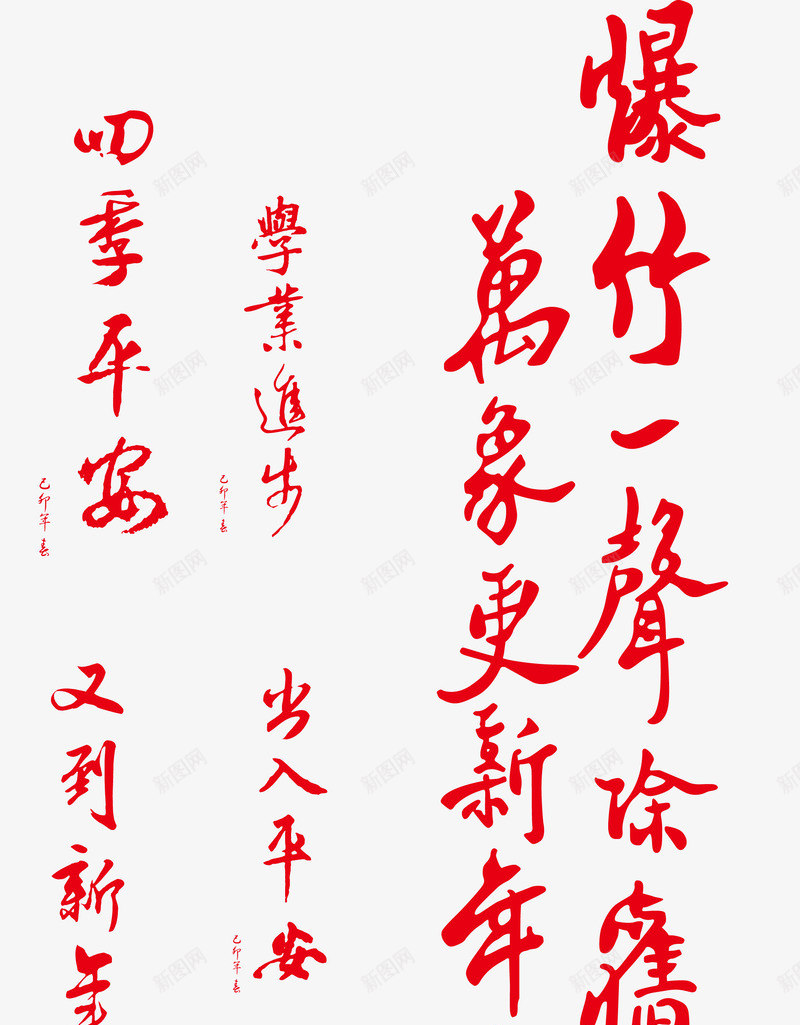 爆竹一聲除舊
萬象更新年
學業進步
己卯年春
四季平安
己卯年春
出入平安
己卯年春
又到新年
新图网